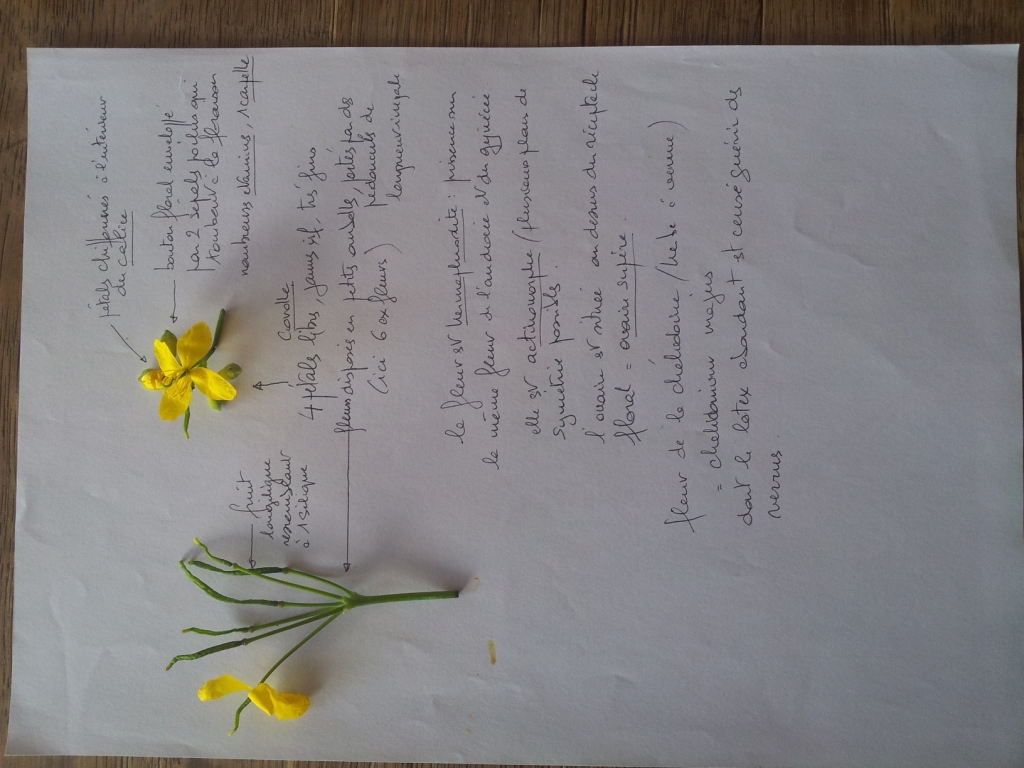 pétales chiffonnés à l'intérieur
du calice
bouton floral enveloppé
par 2 sépales poilus qui
tombent à la floraison
nombreuses étamines, 1 carpelle
Corolle
4 pétales libres, jaune vif, très fins
fleurs disposées en petites ombelles, portées par des
(ici 6 ex fleurs) pédoncules de
longueur inégale
fruit
longiligne
ressemblant
à 1 silique
la fleur est hermaphrodite : présence sur
la même fleur d'androcée et du gynécée
elle est actinomorphe (plusieurs plans de
symétrie possibles.
l'ovaire est située au dessus du réceptacle
floral = ovaire supère
fleur de la chélidoine (herbe à verrue)
= chelidonium majus
dont le latex abondant est censé guérir des
verrues.